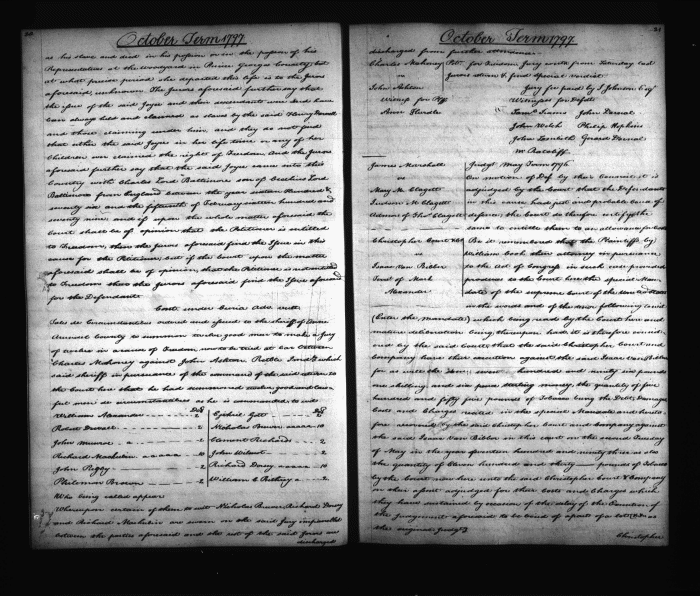 30
October Term 1797
as his slave and died in his possession or in the possession of his
Representatives at the Woodyard in Prince Georges County, but
at what precise period she departed this life is to the Jurors
aforesaid, unknown. The Jurors aforesaid further say that
the issue of the said Joyce and their descendants were and have
been always held and claimed as slaves by the said Henry Darnall
and those claiming under him, and they do not find
that either the said Joyce in her life time or any of her
Children ever claimed the rights of Freedom. And the Jurors
aforesaid further say that the said Joyce came into this
Country with Charles Lord Baltimore son of Cecilius Lord
Baltimore from England between the year sixteen Hundred &
seventy six and the fifteenth of February sixteen hundred and
seventy nine, and if upon the whole matter aforesaid the
Court shall be of opinion that the Petitioner is entitled
to Freedom, then the Jurors aforesaid find the Issue in this
cause for the Petitioner, but if the Court upon the matter
aforesaid shall be of opinion, that the Petitioner is not entitled
to Freedom then the Jurors aforesaid find the Issue aforesaid
for the Defendants
Costs under Curia Adv. vult
Tales de Circumstantibus ordered and issued to the sheriff of Anne
Arundel County to summon twelve good men to make a jury
of twelve in a cause of Freedom now to be tried at bar between
Charles Mahoney against John Ashton. Rettle Ford &c which
said sheriff in pursuance of the command of the said
the Court here that he had summoned twelve good and law
full men de circumstantibus as he is commanded, to wit
Days Days
William Alexander 2 Ezekiel Gott 2
Robert Denall 2 Nicholas Brewer 10
John Munroe 2 Clement Richards 2
Richard Mackubin 10 John Wilmot 2
John Peggy 2 Richard Dorsy 10
Philemon Brown 2 William C Rathry 2
Who being called appear
Whereupon certain of them to wit Nicholas Brewer, Richard Dorsy
and Richard Mackubin are sworn on the said Jury impannelled
between the parties aforesaid and the rest of the said Jurors are
discharged
31
October Term 1797
discharged from further attendance.
Charles Mahoney Petn. for Freedom Jury sworn from Saturday last
vs Jurors retire & find special verdict
John Ashton Jury fee paid by J Johnson Esqr
Witness for Pltff Witnesses for Defdt
Anne Hurdle James John Darnal
John Welch Philip Hopkins
John Lambeth Gerard Darnal
Wm Ratcliff
James Marshall Judgt. May Term 1796
vs On motion of Deft by their Counsel it is
Mary M. Clagett adjudged by the Court that the Defendants
Judson M Clagett in this cause had just and probable cause of
Admrs of Thos Clagett defence, the Court do therefore certify the
same to entitle them to an allowance for costs
Christopher Court &Co Be it remembered that the Plaintiffs by
vs William Cook their attorney in pursuance
Isaac Van Bibber to the Act of Congress in such case provided
Survr. of Mark produces to the Court here the special Man
Alexander date of the supreme Court of the United States
in the words and of the tenor following to wit
(Enter the mandate) which being read by the Court here and
mature deliberation being thereupon had, it is therefore consid
ered by the said Court that the said Christopher Court and
Company have their execution against the said Isaac Van Bibber
for as well the sum seven hundred and ninety six pounds
one shilling and six pence sterling money, the quantity of five
hundred and fifty five pounds of Tobacco being the Debt, Damages
Costs and Charges recited in the special Mandate and hereto
fore recovered by the said Christopher Court and Company against
the said Isaac Van Bibber in this Court on the second Tuesday
of May in the year seventeen hundred and ninety three as also
the quantity of Eleven hundred and thirty pounds of Tobacco
by the Court now here unto the said Christopher Court & Company
on their assent adjudged for their Costs and Charges which
they have sustained by occasion of the delay of the Execution of
the Judgement aforesaid to be bind of a part of a lot &c as
the original Judgt
Christopher